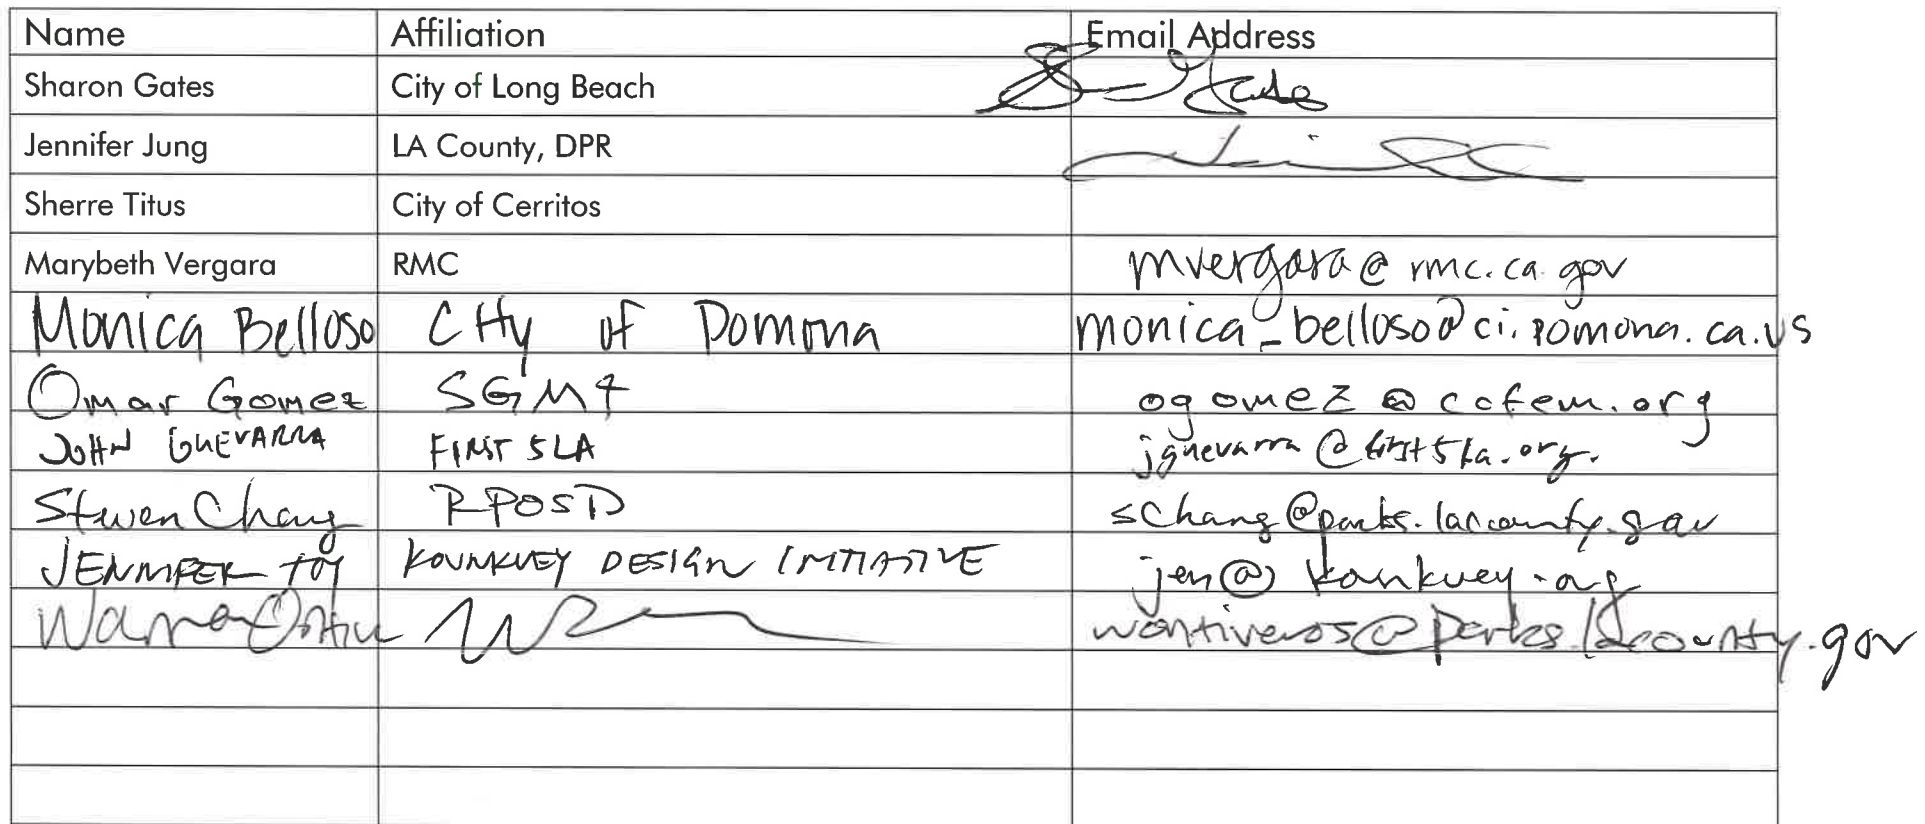 Name Affiliation Email Address
Sharon Gates City of Long Beach
Jennifer Jung LA County, DPR
Sherre Titus City of Cerritos
Marybeth Vergara RMC mvergara@rmc.ca.gov
Monica Belloso City of Pomona monica_belloso@ci.pomona.ca.us
Omar Gomez SGM4 ogomez@cofem.org
JOHN GUEVARRA FIRST 5 LA jguevarra@first5la.org.
Steven Chang RPOSD schang@parks.lacounty.gov
JENNIFER TOY KOUNKUEY DESIGN INITIATIVE jen@kounkuey.org
wontiveros@parks.lacounty.gov